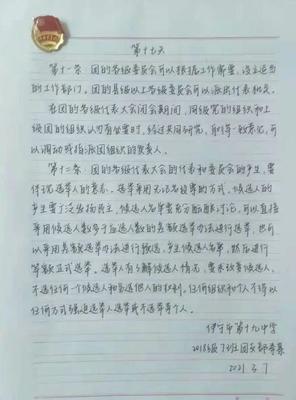 第十七天
第十一条 团的各级委员会可以根据工作需要，设立适当
的工作部门。团的县级以上各级委员会可以派出代表机关。
在团的各级代表大会闭会期间，同级党的组织和上
级团的组织认为有必要时，经过共同研究，取得一致意见，可
以调动或指派团组织的负责人。
第十二条 团的各级代表大会的代表和委员会的产生，要
体现选举人的意志。选举采用无记名投票的方式。候选人的
产生要广泛发扬民主，候选人名单要充分酝酿讨论。可以直接
采用候选人数多于应选人数的差额选举办法进行选举，也可
以采用差额选举办法进行预选，产生候选人名单，然后进行
等额正式选举。选举人有了解候选人情况，要求改变候选人，
不选任何一个候选人和另选他人的权利。任何组织和个人不得以
任何方式强迫选举人选举或不选举某个人。
伊宁市第十九中学
2018级7班团支部
2021.3.7